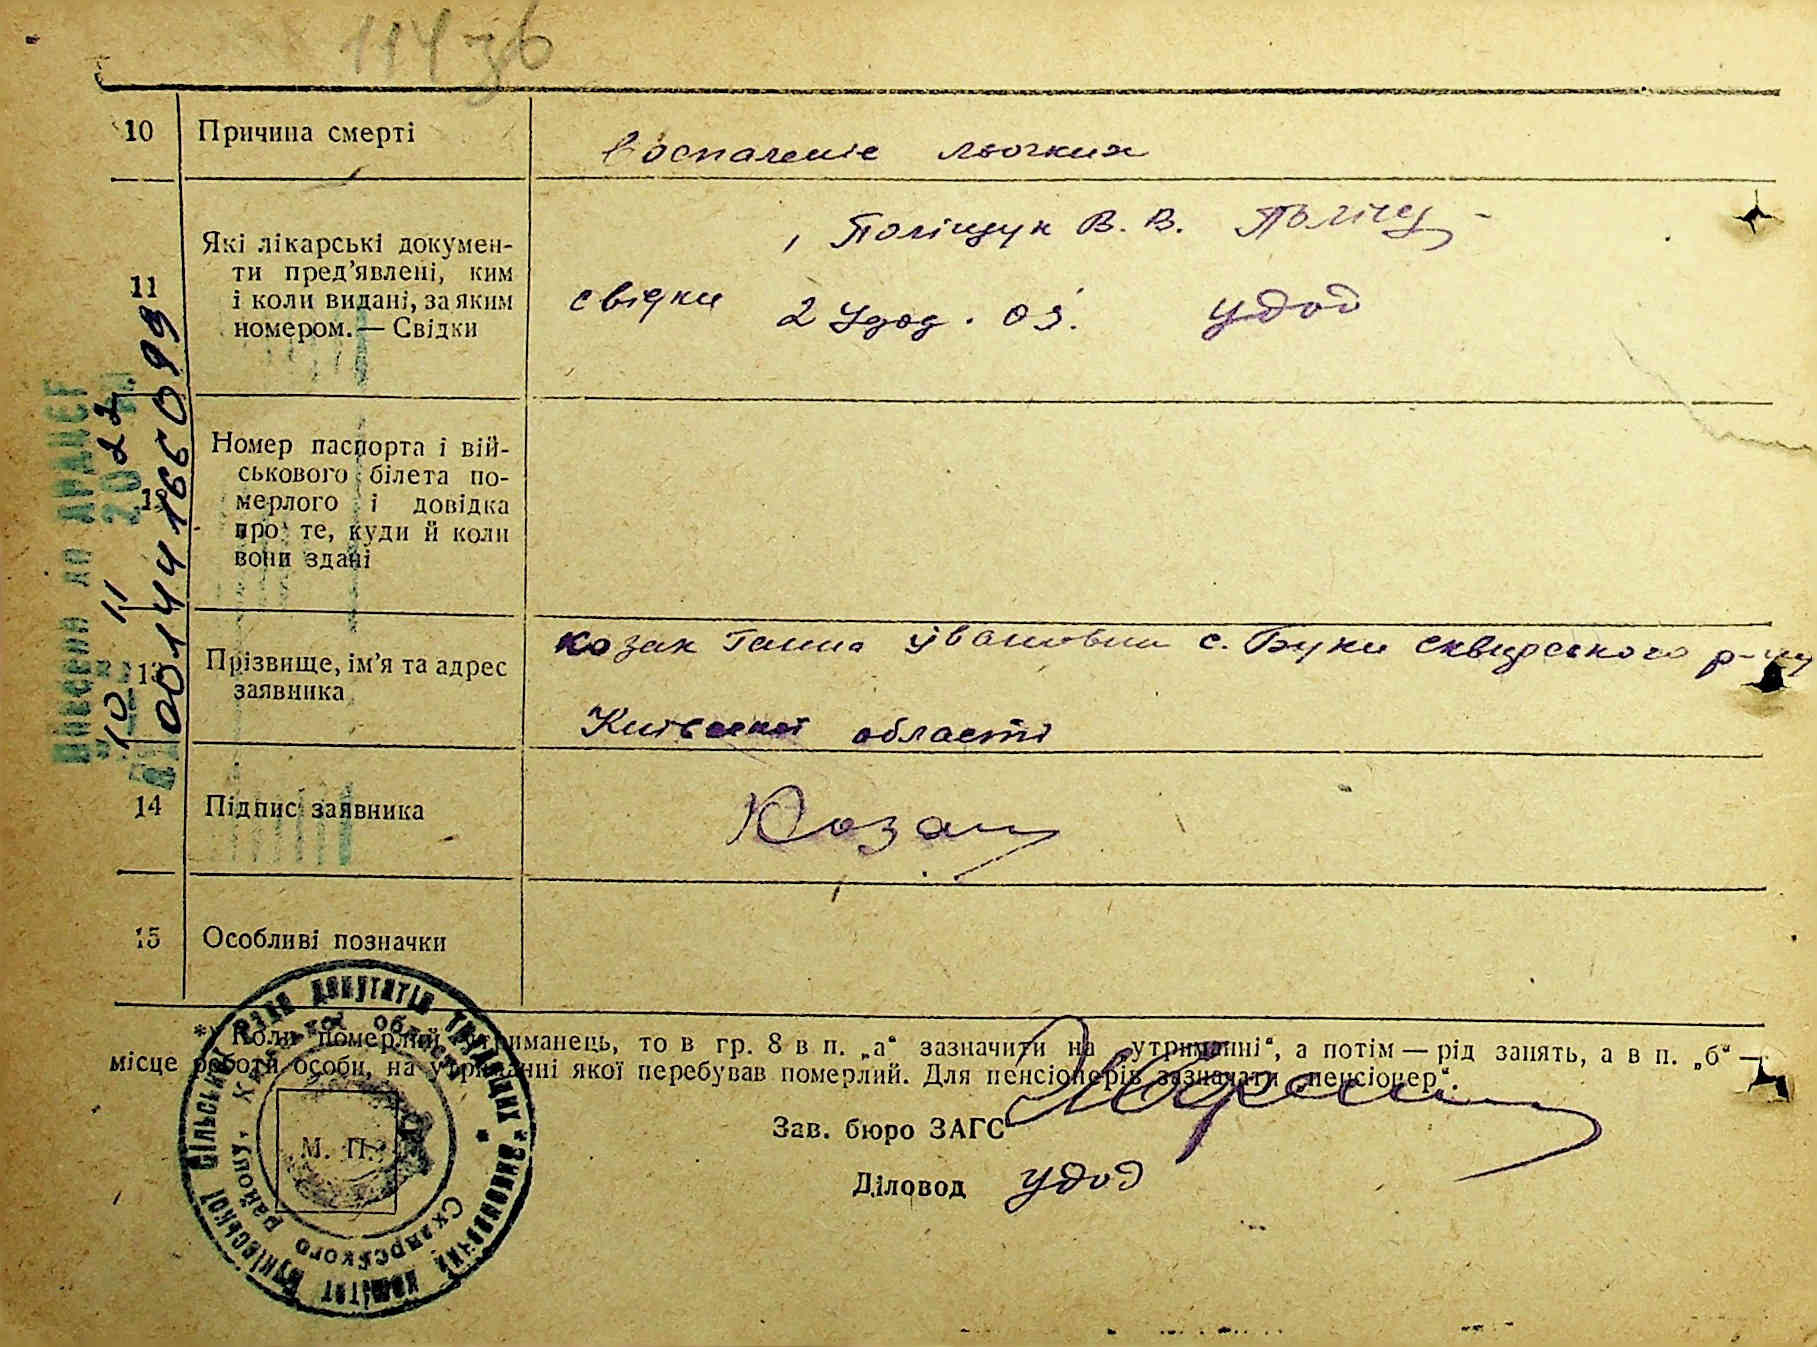 114 зв
10 Причина смерті воспаленіє льогких
11 Які лікарські докумен-
ти пред'явлені, ким
і коли видані, за яким
номером.— Свідки
, Поліщук В. В. Поліщ
свідки 2 Удод. О. З. Удод
Номер паспорта і вій-
ськового білета по-
мерлого і довідка
про те, куди й коли
вони здані
Прізвище, ім'я та адрес
заявника
козак Ганна Ивановна с. Буки Сквирського р-ну
Київської області
14 Підпис заявника Козак
15 Особливі позначки
*) Коли померлий утриманець, то в гр. 8 в п. „а“ зазначити на „утриманні“, а потім — рід занять, а в п. „б“ —
місце роботи особи, на утриманні якої перебував померлий. Для пенсіонерів зазначати „пенсіонер“.
Зав. бюро ЗАГС
Діловод Удод
М. П.
Виконавчий комітет Буківської сільської Ради депутатів трудящих
Сквирського району, Київської області
Внесено до ДРАЦСГ
10 11 2022
00144166099